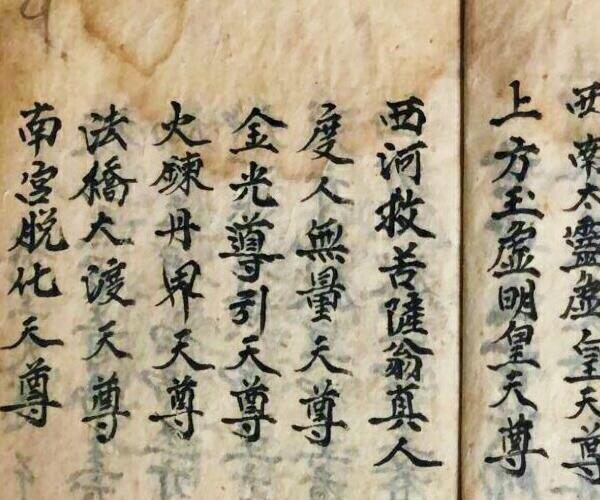 西南太靈虛皇天尊
上方玉虛明皇天尊
西河救苦薩翁真人
度人無量天尊
金光導引天尊
火鍊丹界天尊
法橋大渡天尊
南宮脫化天尊